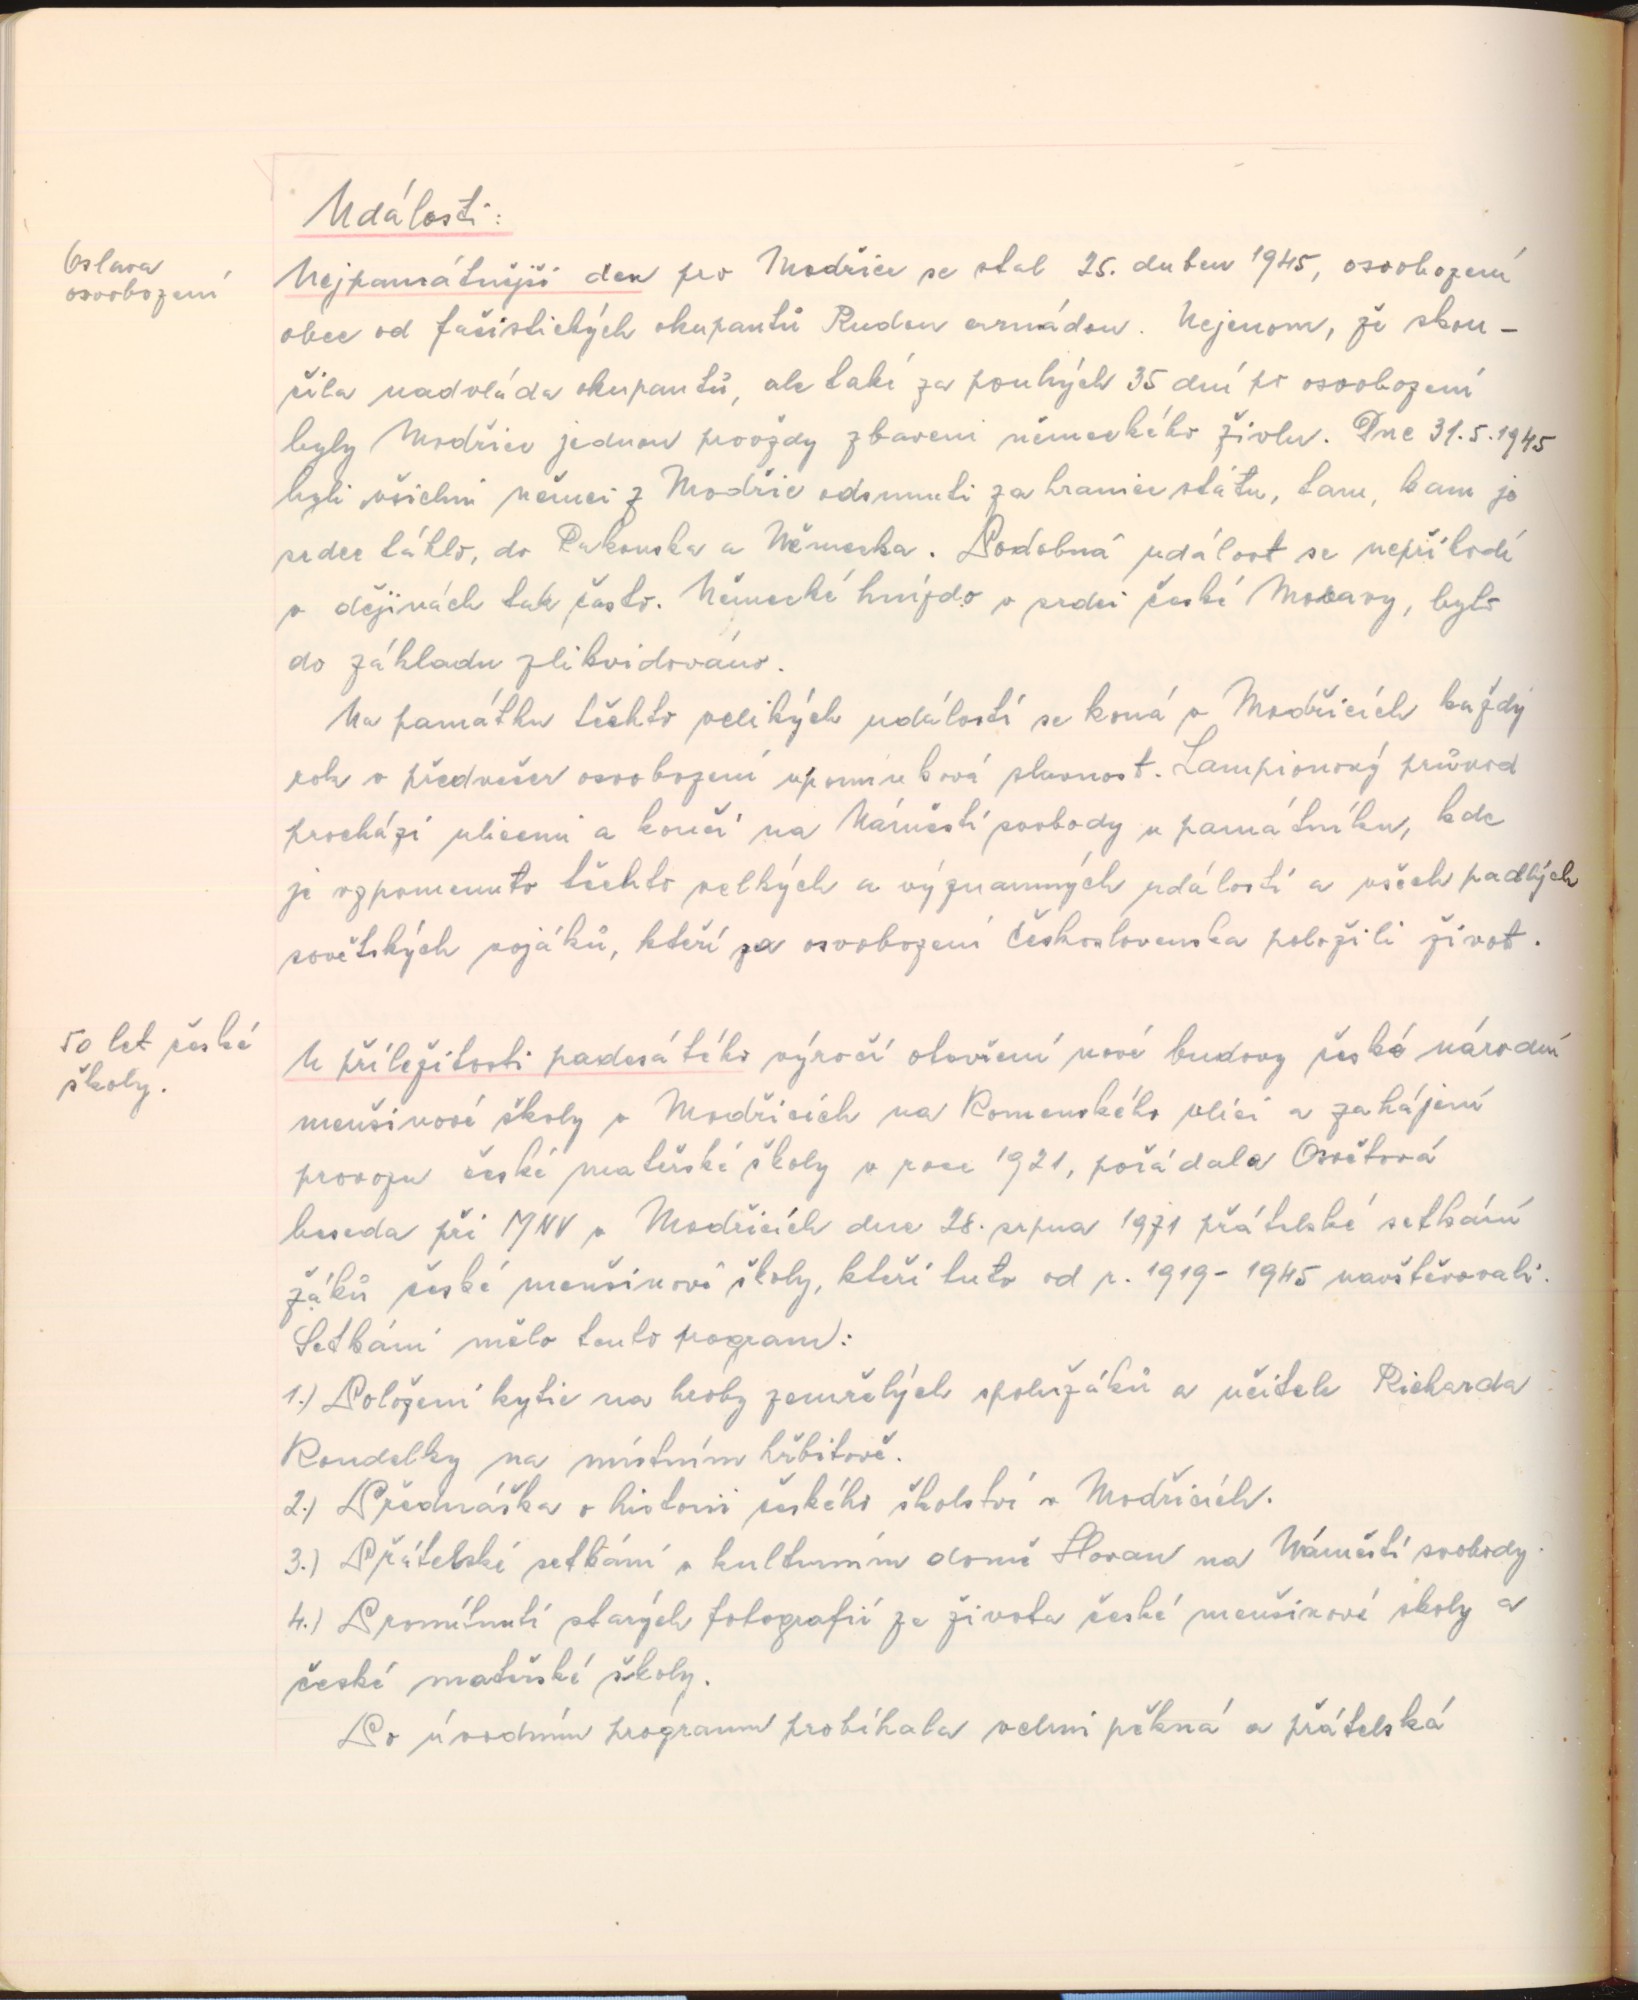 Události:
Oslava
osvobození
Nejpamátnější den pro Modřice se stal 25. duben 1945, osvobození
obce od fašistických okupantů Rudou armádou. Nejenom, že skon-
čila nadvláda okupantů, ale také za pouhých 35 dní po osvobození
byly Modřice jednou provždy zbaveni německého živlu. Dne 31.5.1945
byli všichni němci z Modřic odsunuti za hranice státu, tam, kam je
srdce táhlo, do Rakouska a Německa. Podobná událost se nepřihodí
v dějinách tak často. Německé hnízdo v srdci české Moravy, bylo
do základu zlikvidováno.
Na památku těchto velikých událostí se koná v Modřicích každý
rok v předvečer osvobození upomínková slavnost. Lampionový průvod
prochází ulicemi a končí na Náměstí svobody u památníku, kde
je vzpomenuto těchto velkých a významných událostí a všech padlých
sovětských vojáků, kteří za osvobození Československa položili život.
50 let české
školy.
U příležitosti padesátého výročí otevření nové budovy české národní
menšinové školy v Modřicích na Komenského ulici a zahájení
provozu české mateřské školy v roce 1921, pořádala Osvětová
beseda při MNV v Modřicích dne 28. srpna 1971 přátelské setkání
žáků české menšinové školy, kteří tuto od r. 1919-1945 navštěvovali.
Setkání mělo tento program:
1.) Položení kytic na hroby zemřelých spolužáků a učitele Richarda
Koudelky na místním hřbitově.
2.) Přednáška o historii českého školství v Modřicích.
3.) Přátelské setkání v kulturním domě Slovan na Náměstí svobody.
4.) Promítnutí starých fotografií ze života české menšinové školy a
české mateřské školy.
Po úvodním programu probíhala velmi pěkná a přátelská